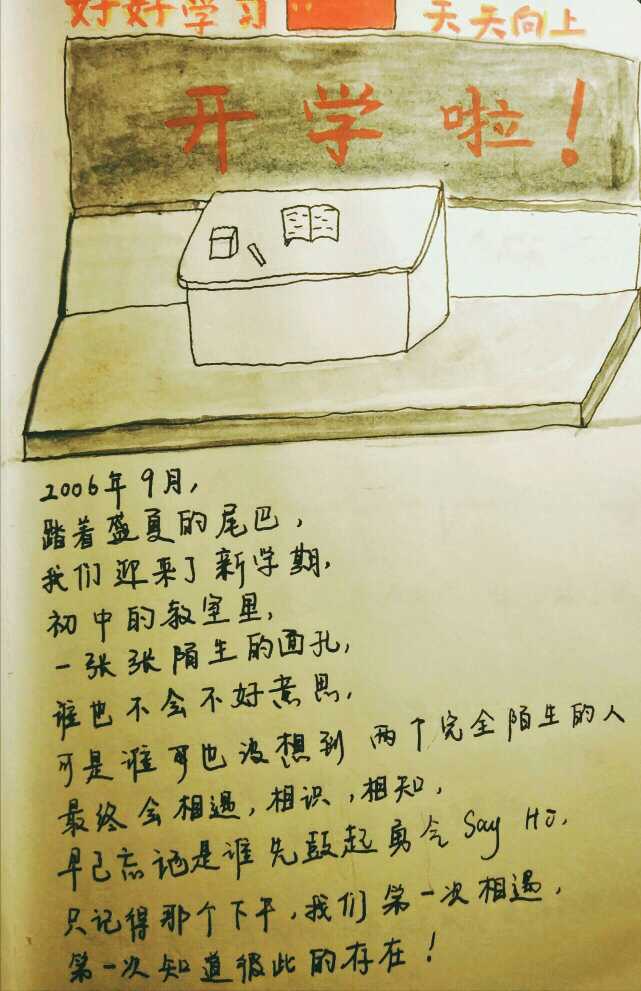 好好学习 天天向上
开学啦！
2006年9月，
踏着盛夏的尾巴，
我们迎来了新学期，
初中的教室里，
一张张陌生的面孔，
谁也不会不好意思，
可是谁可也没想到 两个完全陌生的人
最终会相遇，相识，相知，
早已忘记是谁先鼓起勇气 Say Hi，
只记得那个下午，我们第一次相遇，
第一次知道彼此的存在！